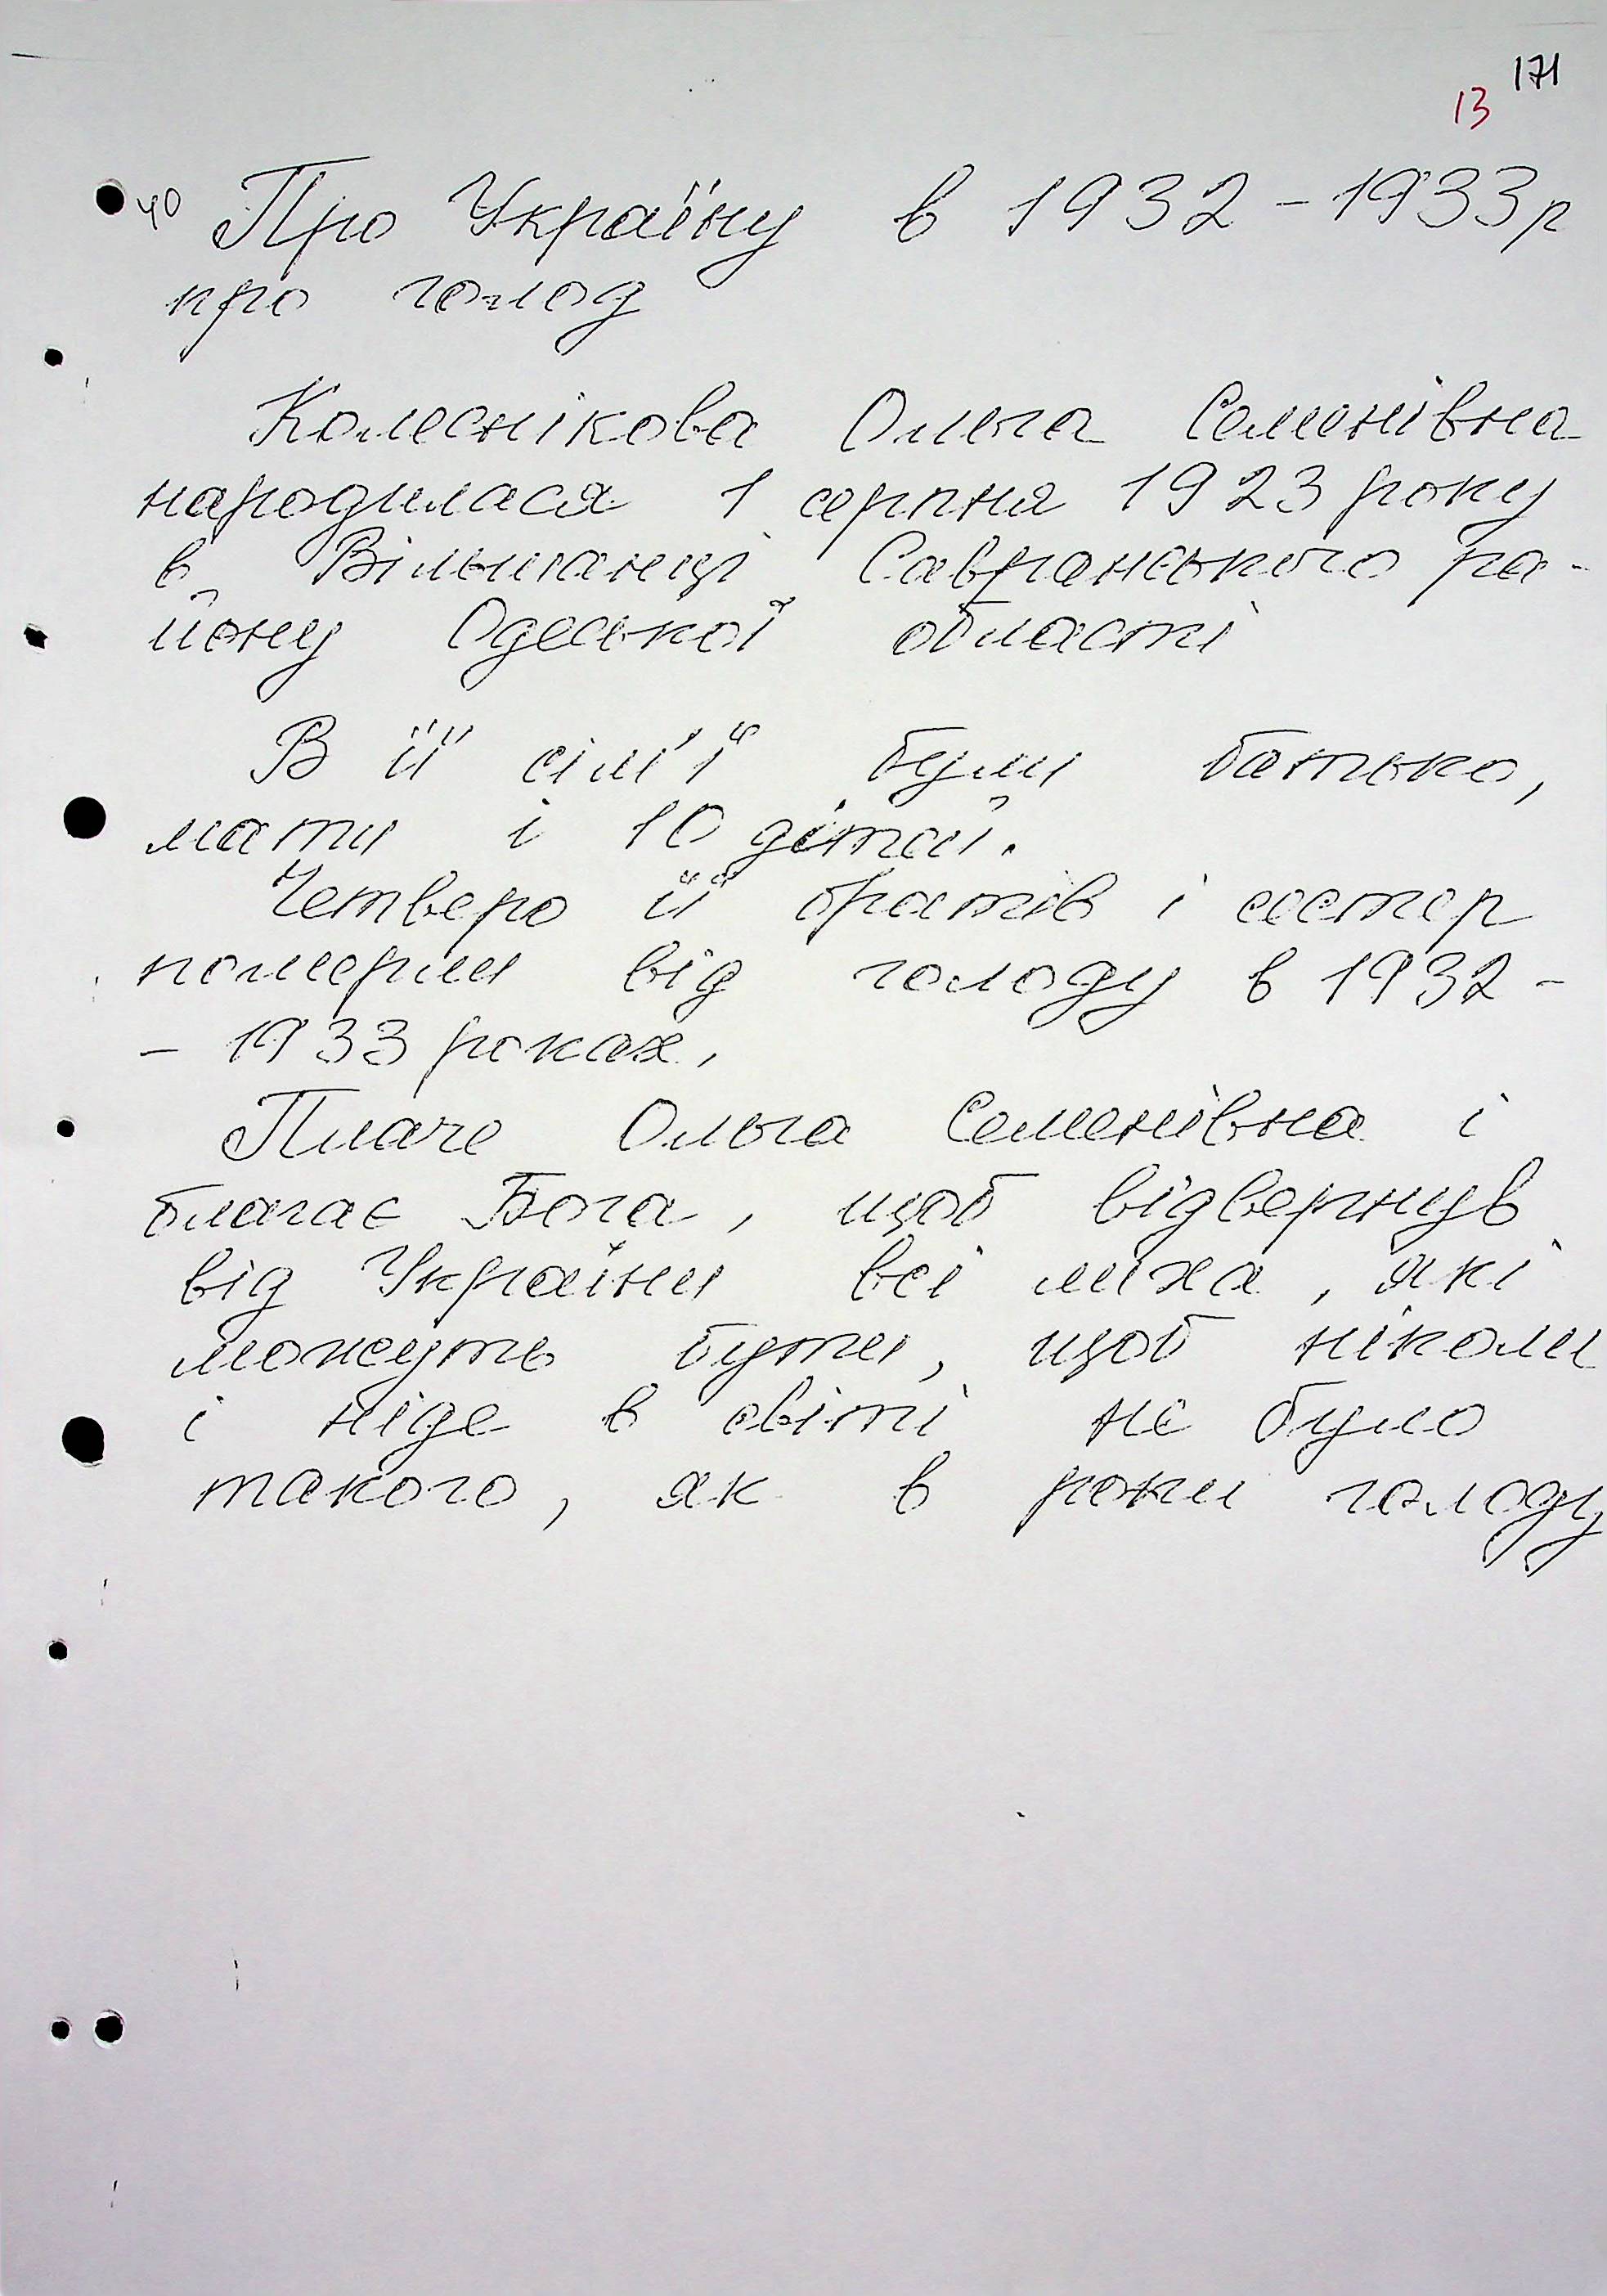 171
13
40 Про Україну в 1932-1933р
про голод
Колеснікова Ольга Семенівна
народилася 1 серпня 1923 року
в Вільшанці Савранського ра-
йону Одеської області
В її сім'ї були батько,
мати і 10 дітей.
Четверо її братів і сестер
померли від голоду в 1932-
- 1933 роках.
Плаче Ольга Семенівна і
благає Бога, щоб відвернув
від України всі лиха, які
можуть бути, щоб ніколи
і ніде в світі не було
такого, як в роки голоду